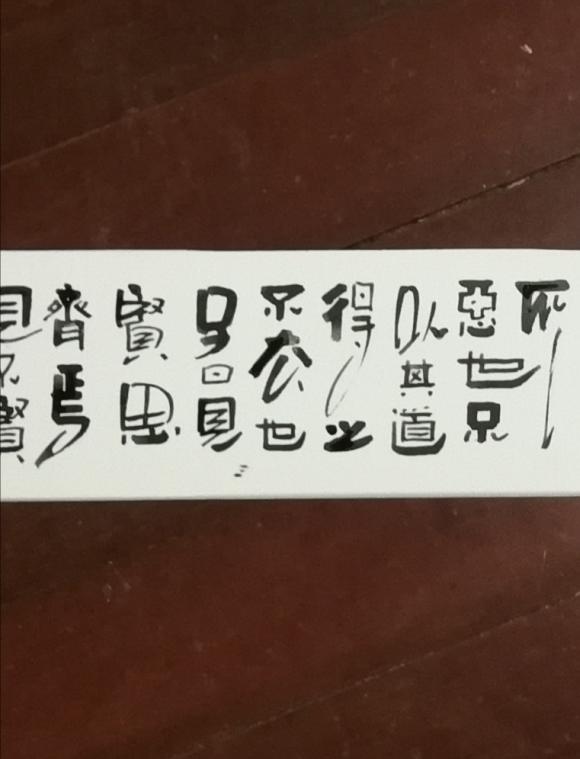 所
惡也不
以其道
得之
不去也
子曰見
賢思
齊焉
見不賢